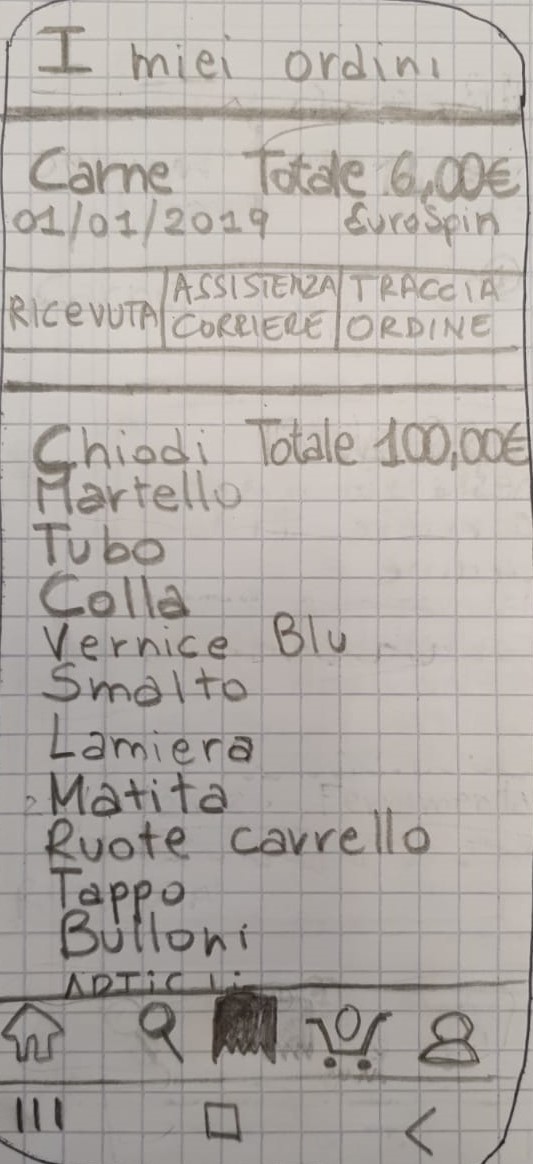 I miei ordini
Carne Totale 6,00€
01/01/2019 EuroSpin
RICEVUTA ASSISTENZA CORRIERE TRACCIA ORDINE
Chiodi Totale 100,00€
Martello
Tubo
Colla
Vernice Blu
Smalto
Lamiera
Matita
Ruote carrello
Tappo
Bulloni